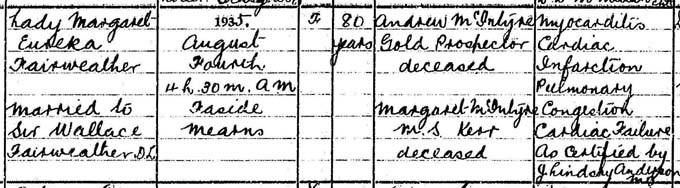 Lady Margaret
Eureka
Fairweather
Married to
Sir Wallace
Fairweather D.L.
1935.
August
Fourth
4 h. 30 m. A M
Faside
Mearns
F
80
years
Andrew McIntyre
Gold Prospector
deceased
Margaret McIntyre
M.S. Kerr
deceased
Myocarditis
Cardiac
Infarction
Pulmonary
Congestion
Cardiac Failure
As Certified by
J Lindsay Anderson
M.B.